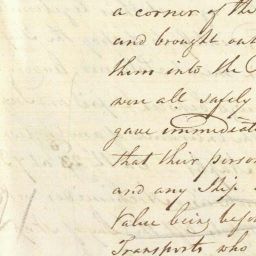 a corner of the
and brought out
them into the
were all safely
gave immediate
that their person
and any Ship
Value being befo
Transports who